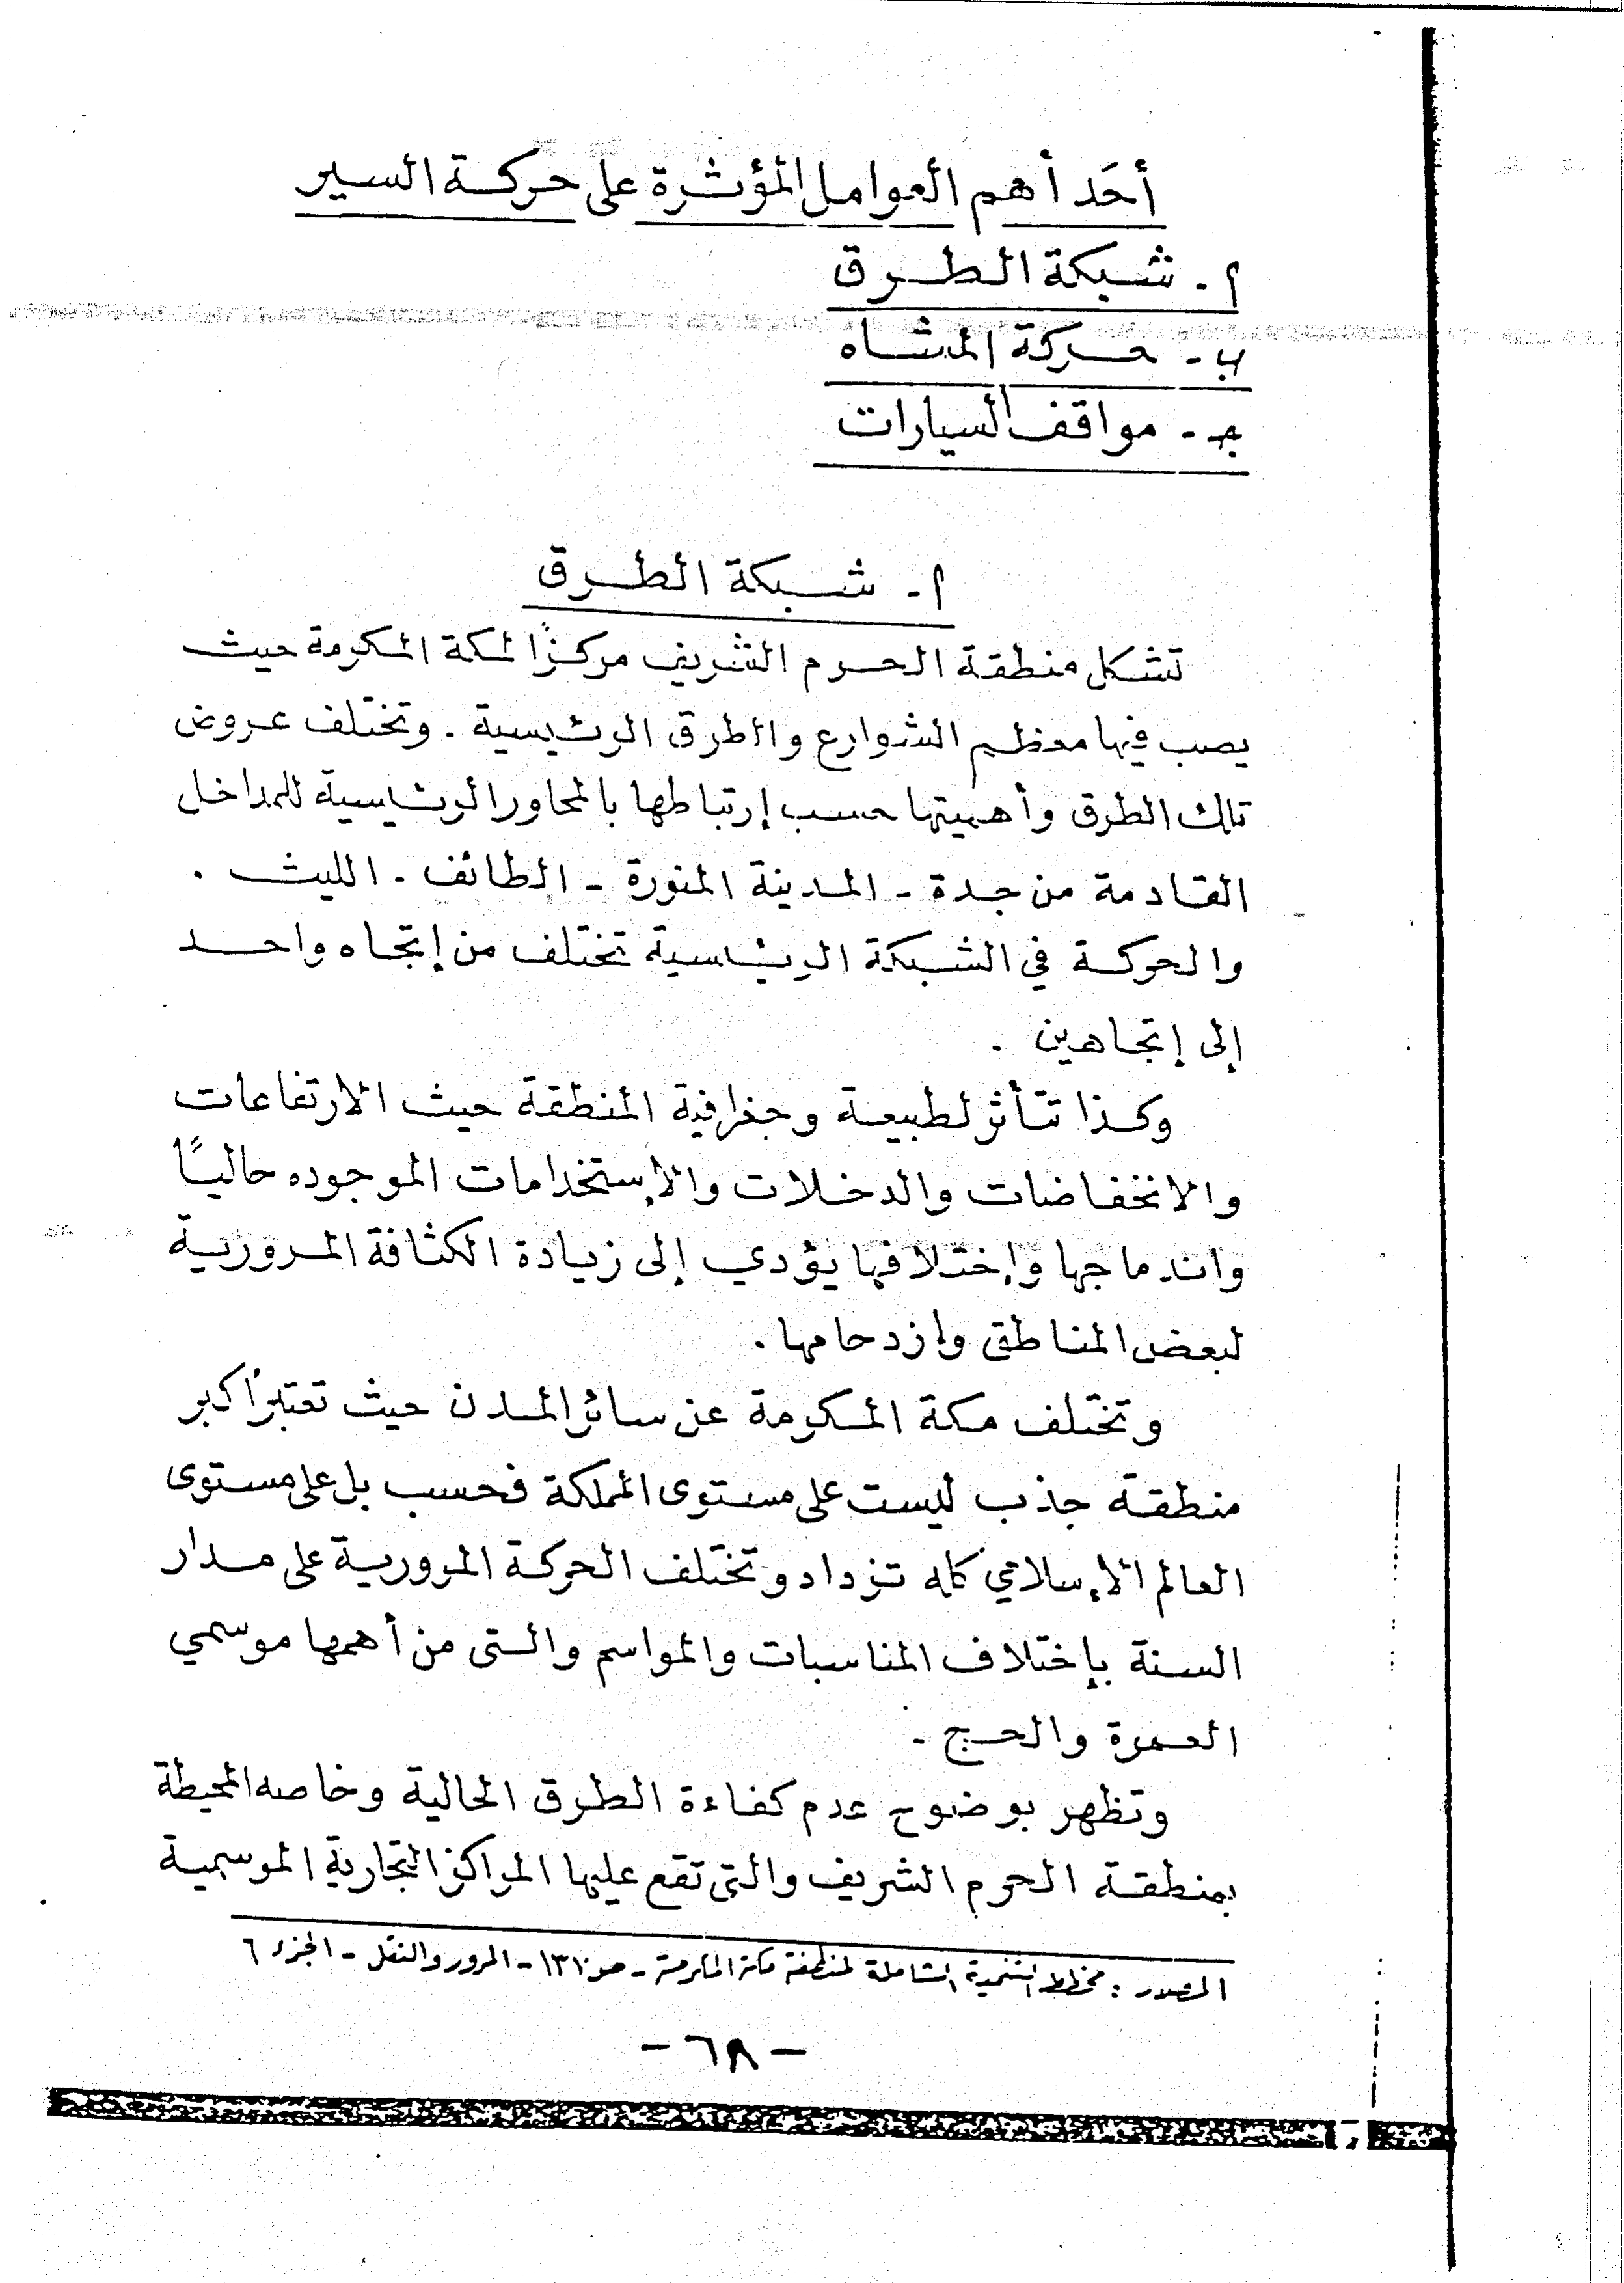 أحَد أهم العوامل المؤثرة على حركة السير
ا - شبكة الطرق
ب - حركة المشاه
جـ - مواقف السيارات
ا - شبكة الطرق
تشكل منطقة الحرم الشريف مركزًا لمكة المكرمة حيث
يصب فيها معظم الشوارع والطرق الرئيسية . وتختلف عروض
تلك الطرق وأهميتها حسب إرتباطها بالمحاور الرئاسية للمداخل
القادمة من جدة - المدينة المنورة - الطائف - الليث .
والحركة في الشبكة الرئاسية تختلف من إتجاه واحد
إلى إتجاهين .
وكذا تتأثر لطبيعة وجغرافية المنطقة حيث الارتفاعات
والانخفاضات والدخلات والإستخدامات الموجوده حاليًا
واندماجها وإختلافها يؤدي إلى زيادة الكثافة المرورية
لبعض المناطق وازدحامها .
وتختلف مكة المكرمة عن سائر المدن حيث تعتبر أكبر
منطقة جذب ليست على مستوى المملكة فحسب بل على مستوى
العالم الإسلامي كله تزداد وتختلف الحركة المرورية على مدار
السنة بإختلاف المناسبات والمواسم والتى من أهمها موسمي
العمرة والحج .
وتظهر بوضوح عدم كفاءة الطرق الحالية وخاصه المحيطة
بمنطقة الحرم الشريف والتى تقع عليها المراكز التجارية الموسمية
المصدر : مخطط التنمية الشاملة لمنطقة مكة المكرمة - ص ١٣١ - المرور والنقل - الجزء ٦
- ٦٨ -